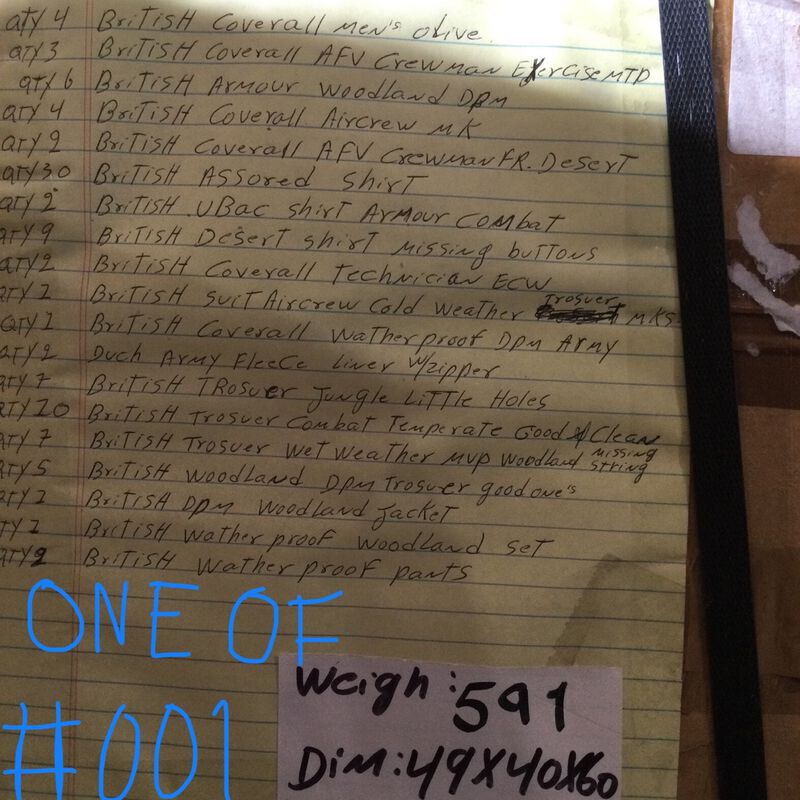 QTY 4 BRITISH COVERALL MEN'S OLIVE
QTY 3 BRITISH COVERALL AFV CREWMAN EXERCISE MTP
QTY 6 BRITISH ARMOUR WOODLAND DPM
QTY 4 BRITISH COVERALL AIRCREW MK
QTY 2 BRITISH COVERALL AFV CREWMAN FR. DESERT
QTY 30 BRITISH ASSORED SHIRT
QTY 2 BRITISH UBAC SHIRT ARMOUR COMBAT
QTY 9 BRITISH DESERT SHIRT MISSING BUTTONS
QTY 2 BRITISH COVERALL TECHNICIAN ECW
QTY 1 BRITISH SUIT AIRCREW COLD WEATHER TROSUER MK5
QTY 1 BRITISH COVERALL WATHERPROOF DPM ARMY
QTY 2 DUCH ARMY FLEECE LINER W/ZIPPER
QTY 7 BRITISH TROSUER JUNGLE LITTLE HOLES
QTY 20 BRITISH TROSUER COMBAT TEMPERATE GOOD & CLEAN
QTY 7 BRITISH TROSUER WET WEATHER MVP WOODLAND MISSING STRING
QTY 5 BRITISH WOODLAND DPM TROSUER GOOD ONE'S
QTY 1 BRITISH DPM WOODLAND JACKET
QTY 1 BRITISH WATHER PROOF WOODLAND SET
QTY 2 BRITISH WATHER PROOF PANTS
ONE OF
#001
Weigh: 591
Dim: 49X40X60